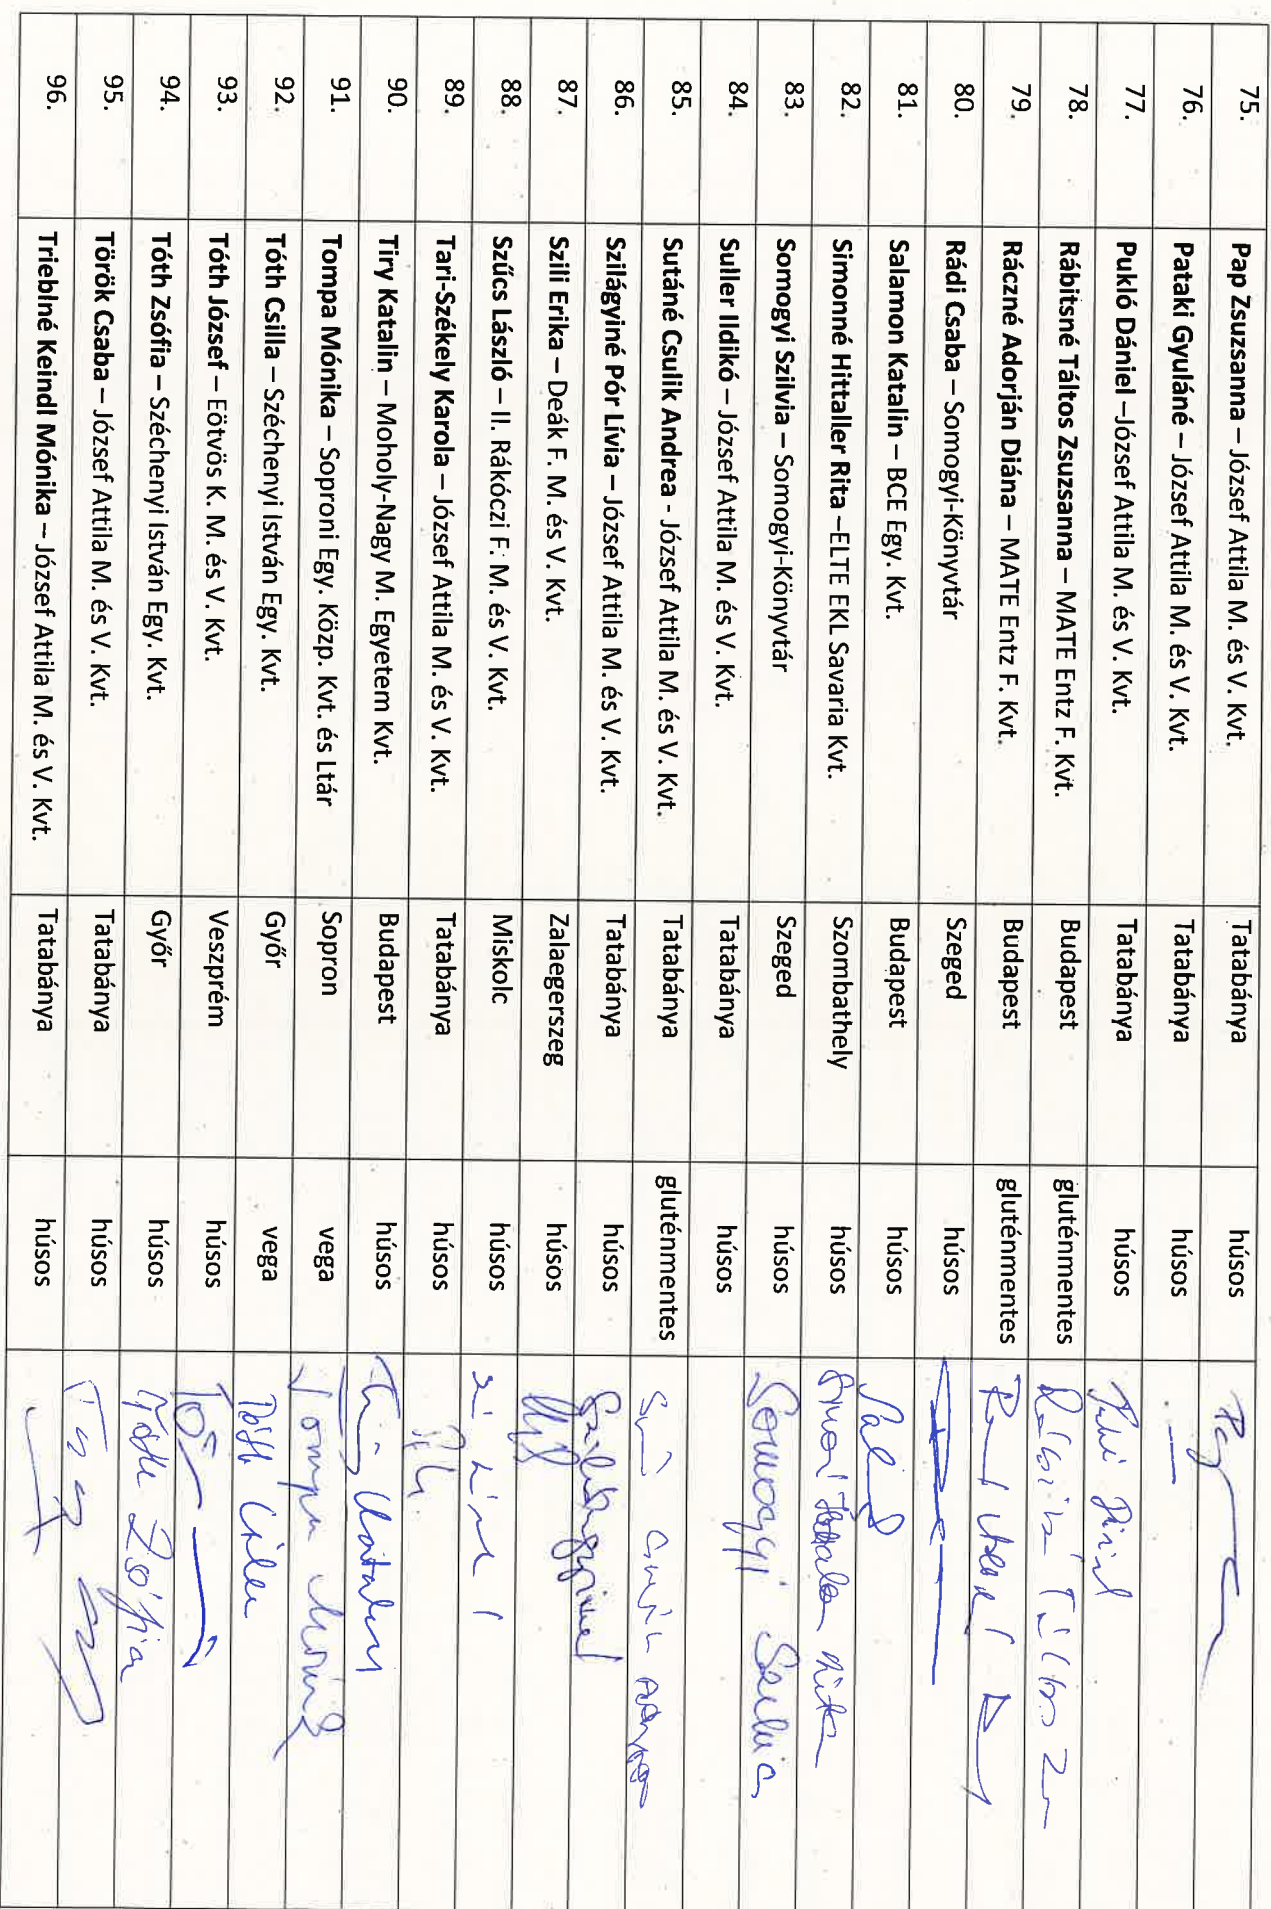 75. Pap Zsuzsanna – József Attila M. és V. Kvt. Tatabánya húsos
76. Pataki Gyuláné – József Attila M. és V. Kvt. Tatabánya húsos
77. Pukló Dániel –József Attila M. és V. Kvt. Tatabánya húsos
78. Rábitsné Táltos Zsuzsanna – MATE Entz F. Kvt. Budapest gluténmentes
79. Ráczné Adorján Diána – MATE Entz F. Kvt. Budapest gluténmentes
80. Rádi Csaba – Somogyi-Könyvtár Szeged húsos
81. Salamon Katalin – BCE Egy. Kvt. Budapest húsos
82. Simonné Hittaller Rita –ELTE EKL Savaria Kvt. Szombathely húsos
83. Somogyi Szilvia – Somogyi-Könyvtár Szeged húsos Somogyi Szilvia
84. Suller Ildikó – József Attila M. és V. Kvt. Tatabánya húsos
85. Sutáné Csulik Andrea - József Attila M. és V. Kvt. Tatabánya gluténmentes
86. Szilágyiné Pór Lívia – József Attila M. és V. Kvt. Tatabánya húsos
87. Szili Erika – Deák F. M. és V. Kvt. Zalaegerszeg húsos
88. Szűcs László – II. Rákóczi F. M. és V. Kvt. Miskolc húsos
89. Tari-Székely Karola – József Attila M. és V. Kvt. Tatabánya húsos
90. Tiry Katalin – Moholy-Nagy M. Egyetem Kvt. Budapest húsos Tiry Katalin
91. Tompa Mónika – Soproni Egy. Közp. Kvt. és Ltár Sopron vega Tompa Mónika
92. Tóth Csilla – Széchenyi István Egy. Kvt. Győr vega Tóth Csilla
93. Tóth József – Eötvös K. M. és V. Kvt. Veszprém húsos
94. Tóth Zsófia – Széchenyi István Egy. Kvt. Győr húsos Tóth Zsófia
95. Török Csaba – József Attila M. és V. Kvt. Tatabánya húsos
96. Trieblné Keindl Mónika – József Attila M. és V. Kvt. Tatabánya húsos